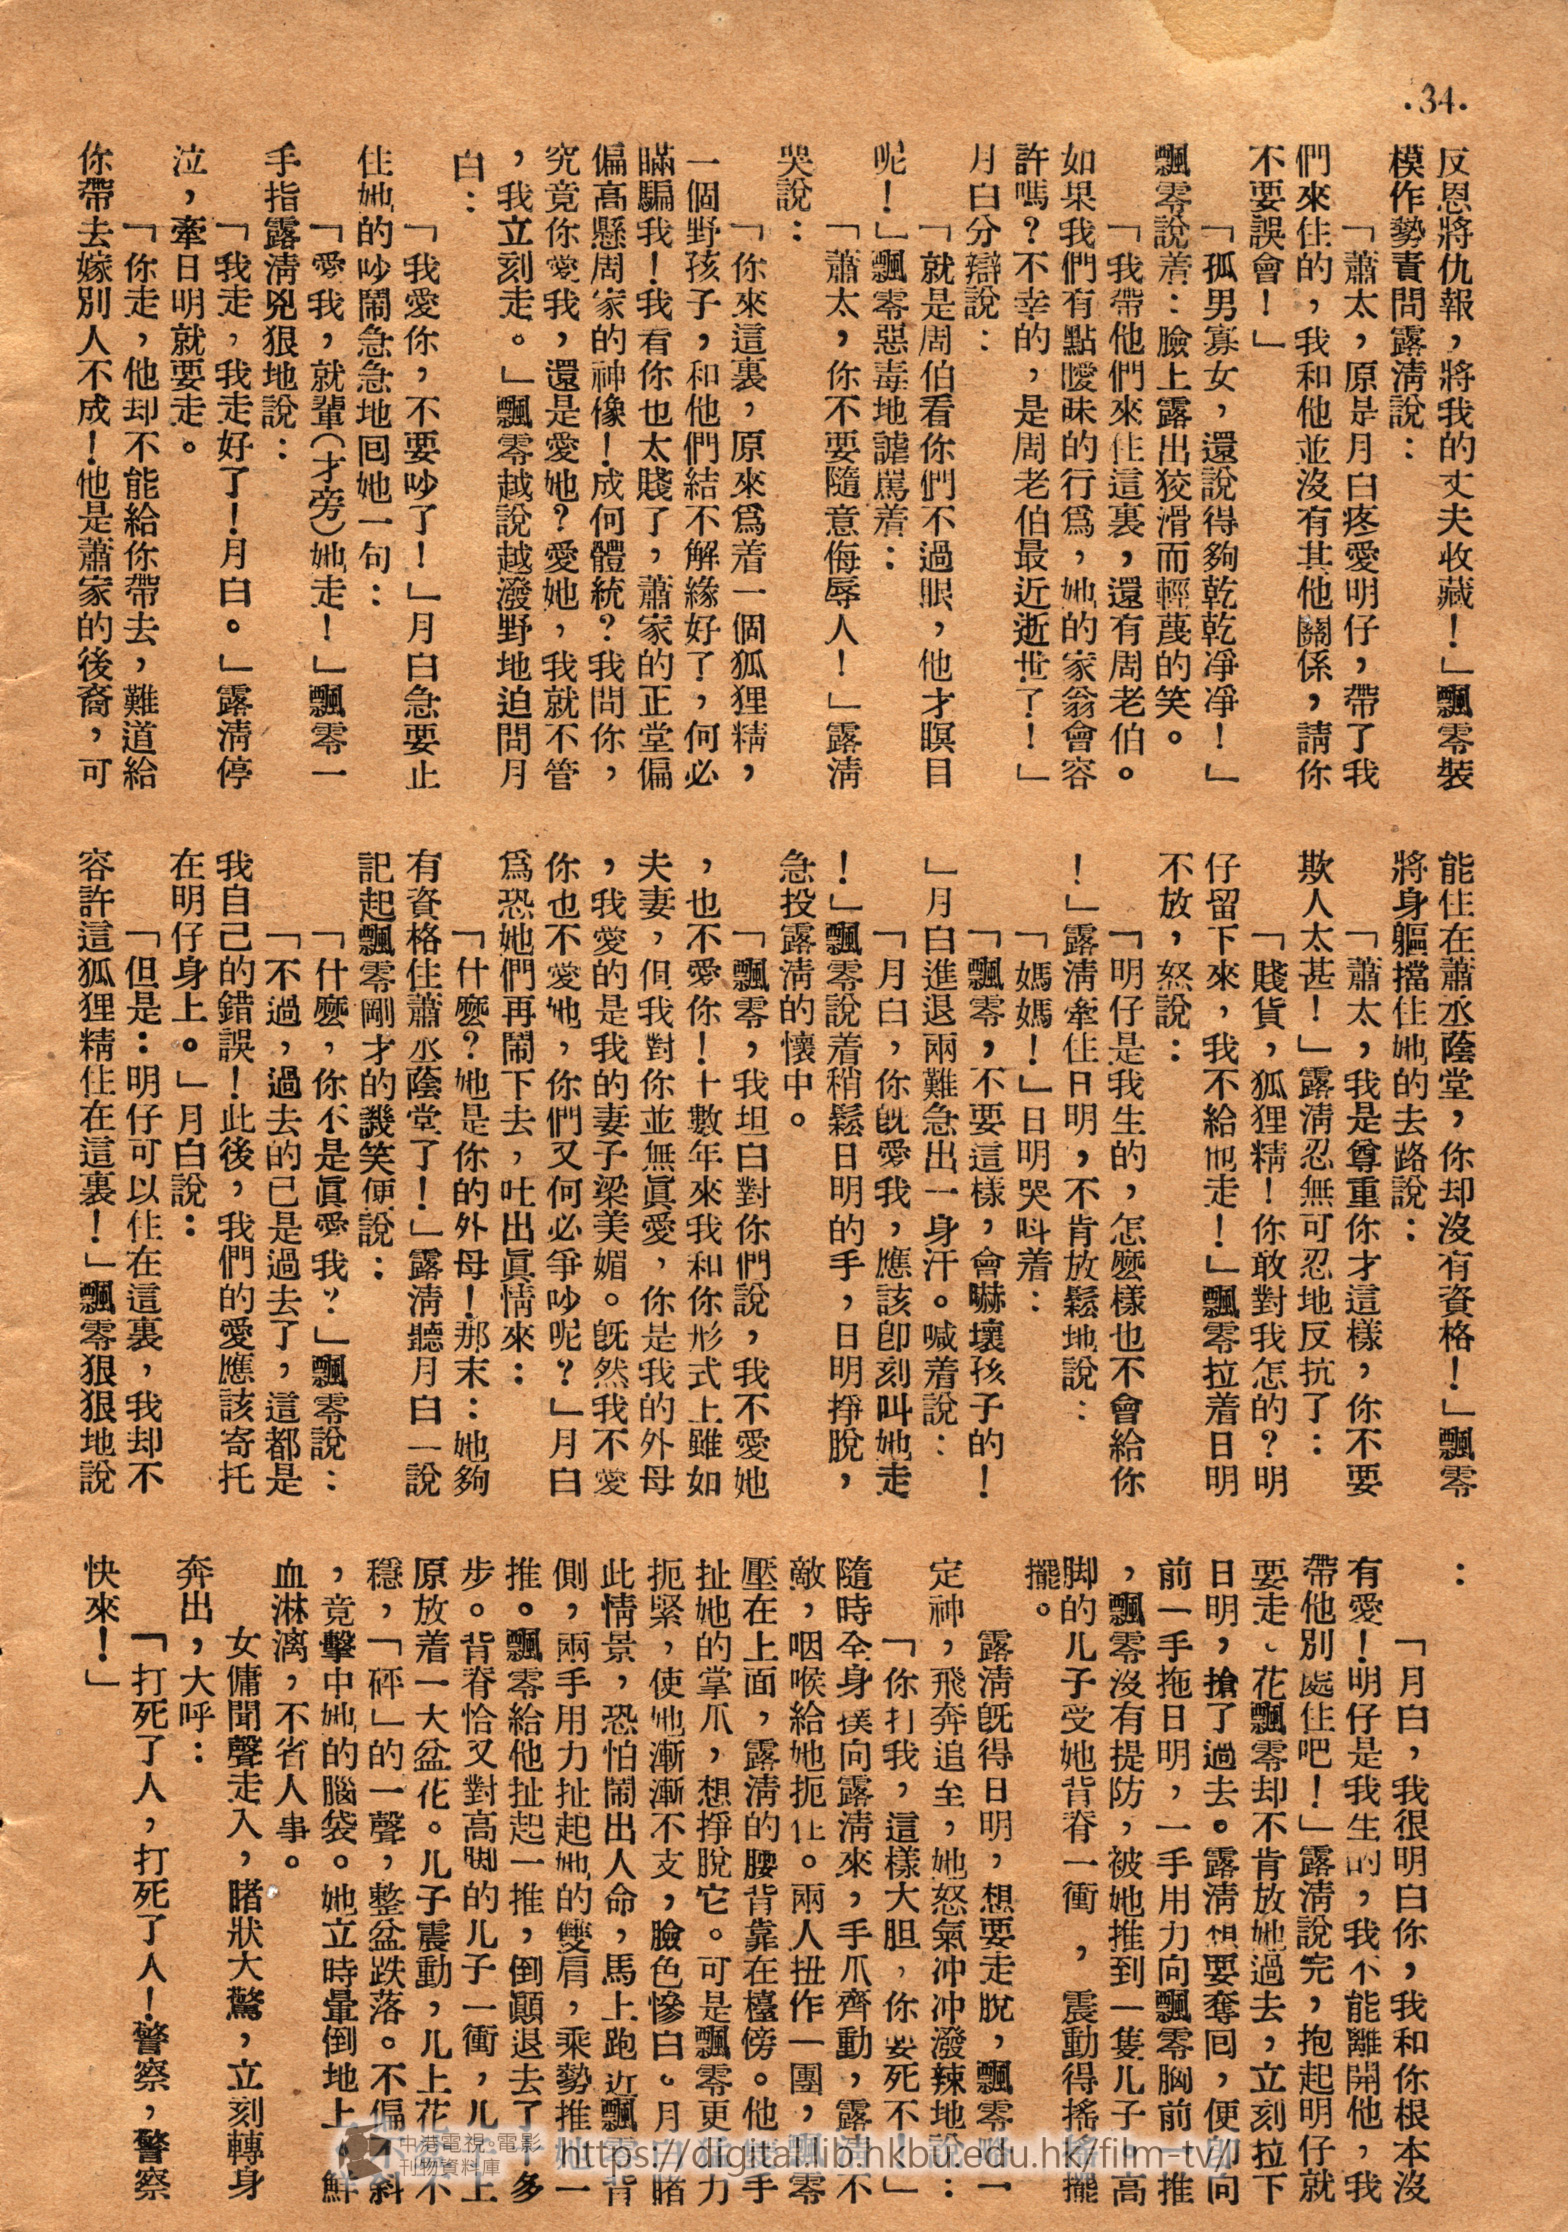 ·34·
反恩將仇報，將我的丈夫收藏！」飄零裝
模作勢責問露淸說：
「蕭太，原是月白疼愛明仔，帶了我
們來住的，我和他並沒有其他關係，請你
不要誤會！」
「孤男寡女，還說得夠乾乾淨淨！」
飄零說着：臉上露出狡滑而輕蔑的笑。
「我帶他們來住這裏，還有周老伯。
如果我們有點曖昧的行爲，她的家翁會容
許嗎？不幸的，是周老伯最近逝世了！」
月白分辯說：
「就是周伯看你們不過眼，他才瞑目
呢！」飄零惡毒地謔駡着：
「蕭太，你不要隨意侮辱人！」露淸
哭說：
「你來這裏，原來爲着一個狐狸精，
一個野孩子，和他們結不解緣好了，何必
瞞騙我！我看你也太賤了，蕭家的正堂偏
偏高懸周家的神像！成何體統？我問你，
究竟你愛我，還是愛她？愛她，我就不管
，我立刻走。」飄零越說越潑野地迫問月
白：
「我愛你，不要吵了！」月白急要止
住她的吵鬧急急地回她一句：
「愛我，就輦（才旁）她走！」飄零一
手指露淸兇狠地說：
「我走，我走好了！月白。」露淸停
泣，牽日明就要走。
「你走，他却不能給你帶去，難道給
你帶去嫁別人不成！他是蕭家的後裔，可
能住在蕭丞蔭堂，你却沒有資格！」飄零
將身軀擋住她的去路說：
「蕭太，我是尊重你才這樣，你不要
欺人太甚！」露淸忍無可忍地反抗了：
「賤貨，狐狸精！你敢對我怎的？明
仔留下來，我不給他走！」飄零拉着日明
不放，怒說：
「明仔是我生的，怎麽樣也不會給你
！」露淸牽住日明，不肯放鬆地說：
「媽媽！」日明哭呌着：
「飄零，不要這樣，會嚇壞孩子的！
」月白進退兩難急出一身汗。喊着說：
「月白，你旣愛我，應該卽刻叫她走
！」飄零說着稍鬆日明的手，日明掙脫，
急投露淸的懷中。
「飄零，我坦白對你們說，我不愛她
，也不愛你！十數年來我和你形式上雖如
夫妻，但我對你並無眞愛，你是我的外母
，我愛的是我的妻子梁美媚。旣然我不愛
你也不愛她，你們又何必爭吵呢？」月白
爲恐她們再鬧下去，吐出眞情來：
「什麽？她是你的外母！那末：她夠
有資格住蕭丞蔭堂了！」露淸聽月白一說
記起飄零剛才的譏笑便說：
「什麽，你不是眞愛我？」飄零說：
「不過，過去的已是過去了，這都是
我自己的錯誤！此後，我們的愛應該寄托
在明仔身上。」月白說：
「但是：明仔可以住在這裏，我却不
容許這狐狸精住在這裏！」飄零狠狠地說
：
「月白，我很明白你，我和你根本沒
有愛！明仔是我生的，我不能離開他，我
帶他別處住吧！」露淸說完，抱起明仔就
要走、花飄零却不肯放她過去，立刻拉下
日明，搶了過去。露淸想要奪回，便卽向
前一手拖日明，一手用力向飄零胸前一推
，飄零沒有提防，被她推到一隻儿子。高
脚的儿子受她背脊一衝，震動得搖搖擺
擺。
露淸旣得日明，想要走脫，飄零略一
定神，飛奔追至，她怒氣冲冲潑辣地說：
「你打我，這樣大胆，你要死不！」
隨時全身撲向露淸來，手爪齊動，露淸不
敵，咽喉給她扼住。兩人扭作一團，飄零
壓在上面，露淸的腰背靠在檯傍。他雙手
扯她的掌爪，想掙脫它。可是飄零更猛力
扼緊，使她漸漸不支，臉色慘白。月白睹
此情景，恐怕鬧出人命，馬上跑近飄零背
側，兩手用力扯起她的雙肩，乘勢推她一
推。飄零給他扯起一推，倒顚退去了十多
步。背脊恰又對高脚的儿子一衝，儿子上
原放着一大盆花。儿子震動，儿上花盆不
穩，「砰」的一聲，整盆跌落。不偏不斜
，竟擊中她的腦袋。她立時暈倒地上。鮮
血淋漓，不省人事。
女傭聞聲走入，睹狀大驚，立刻轉身
奔出，大呼：
「打死了人，打死了人！警察，警察
快來！」
中港電視·電影
刊物資料庫
https://digital.lib.hkbu.edu.hk/film-tv/